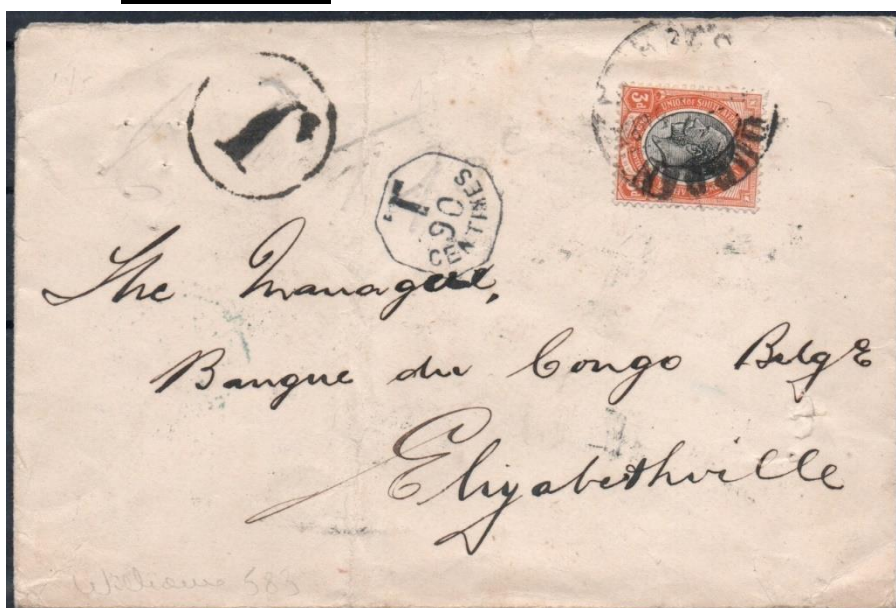 T
T
90
CENTIMES
3d
UNION OF SOUTH AFRICA
The Manager,
Banque du Congo Belge
Elizabethville
583